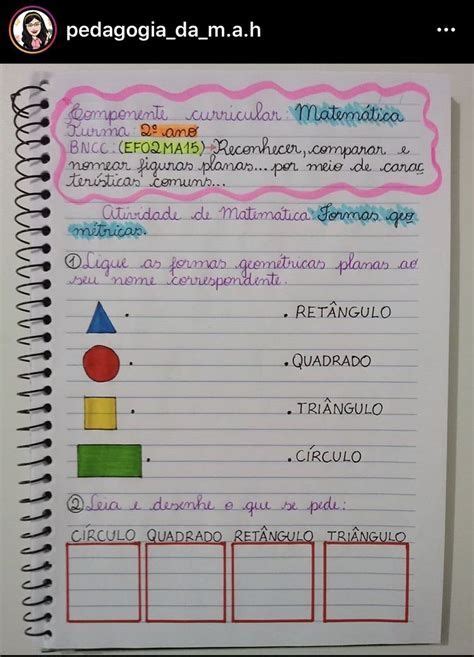 pedagogia_da_m.a.h
Componente curricular: Matemática
Turma: 2º ano
BNCC: (EF02MA15) Reconhecer, comparar e
nomear figuras planas... por meio de carac
terísticas comuns...
Atividade de Matemática Formas geo
métricas.
① Ligue as formas geométricas planas ao
seu nome correspondente.
. RETÂNGULO
. QUADRADO
. TRIÂNGULO
. CÍRCULO
② Leia e desenhe o que se pede:
CÍRCULO QUADRADO RETÂNGULO TRIÂNGULO